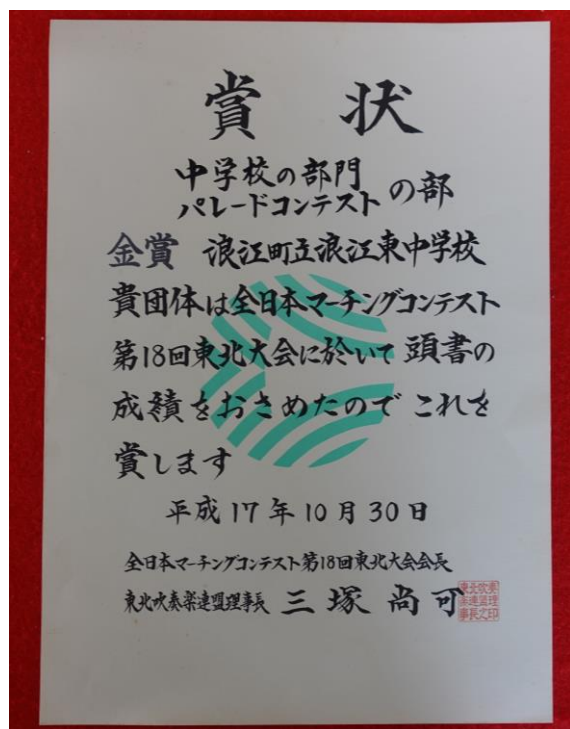 賞状
中学校の部門
パレードコンテスト の部
金賞 浪江町立浪江東中学校
貴団体は全日本マーチングコンテスト
第18回東北大会に於いて頭書の
成績をおさめたのでこれを
賞します
平成17年10月30日
全日本マーチングコンテスト第18回東北大会会長
東北吹奏楽連盟理事長 三塚尚可
東北吹奏
楽連盟理
事長之印